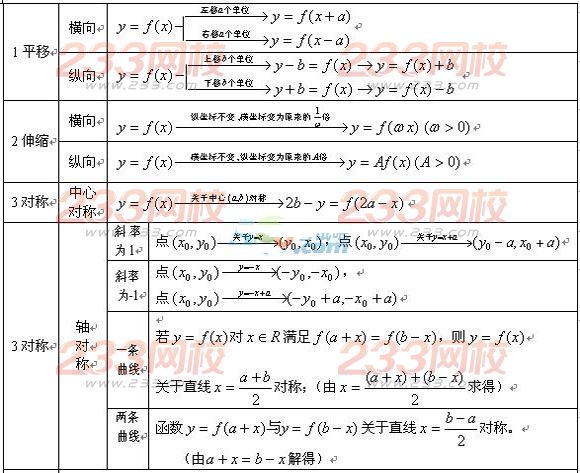 1 平移
横向
y = f(x) 左移a个单位 → y = f(x + a)
右移a个单位 → y = f(x − a)
纵向
y = f(x) 上移b个单位 → y − b = f(x) → y = f(x) + b
下移b个单位 → y + b = f(x) → y = f(x) − b
2 伸缩
横向
y = f(x) 纵坐标不变,横坐标变为原来的1/ω倍 → y = f(ωx) (ω > 0)
纵向
y = f(x) 横坐标不变,纵坐标变为原来的A倍 → y = Af(x) (A > 0)
3 对称
中心
对称
y = f(x) 关于中心(a,b)对称 → 2b − y = f(2a − x)
3 对称
轴
对
称
斜率
为 1
点 (x₀, y₀) 关于y=x → (y₀, x₀)；点 (x₀, y₀) 关于y=x+a → (y₀ − a, x₀ + a)
斜率
为-1
点 (x₀, y₀) y=−x → (−y₀, −x₀)，
点 (x₀, y₀) y=−x+a → (−y₀ + a, −x₀ + a)
一条
曲线
若 y = f(x) 对 x ∈ R 满足 f(a + x) = f(b − x)，则 y = f(x)
关于直线 x = (a + b)/2 对称；(由 x = ((a + x) + (b − x))/2 求得)
两条
曲线
函数 y = f(a + x) 与 y = f(b − x) 关于直线 x = (b − a)/2 对称。
(由 a + x = b − x 解得)
233网校
www.233.com